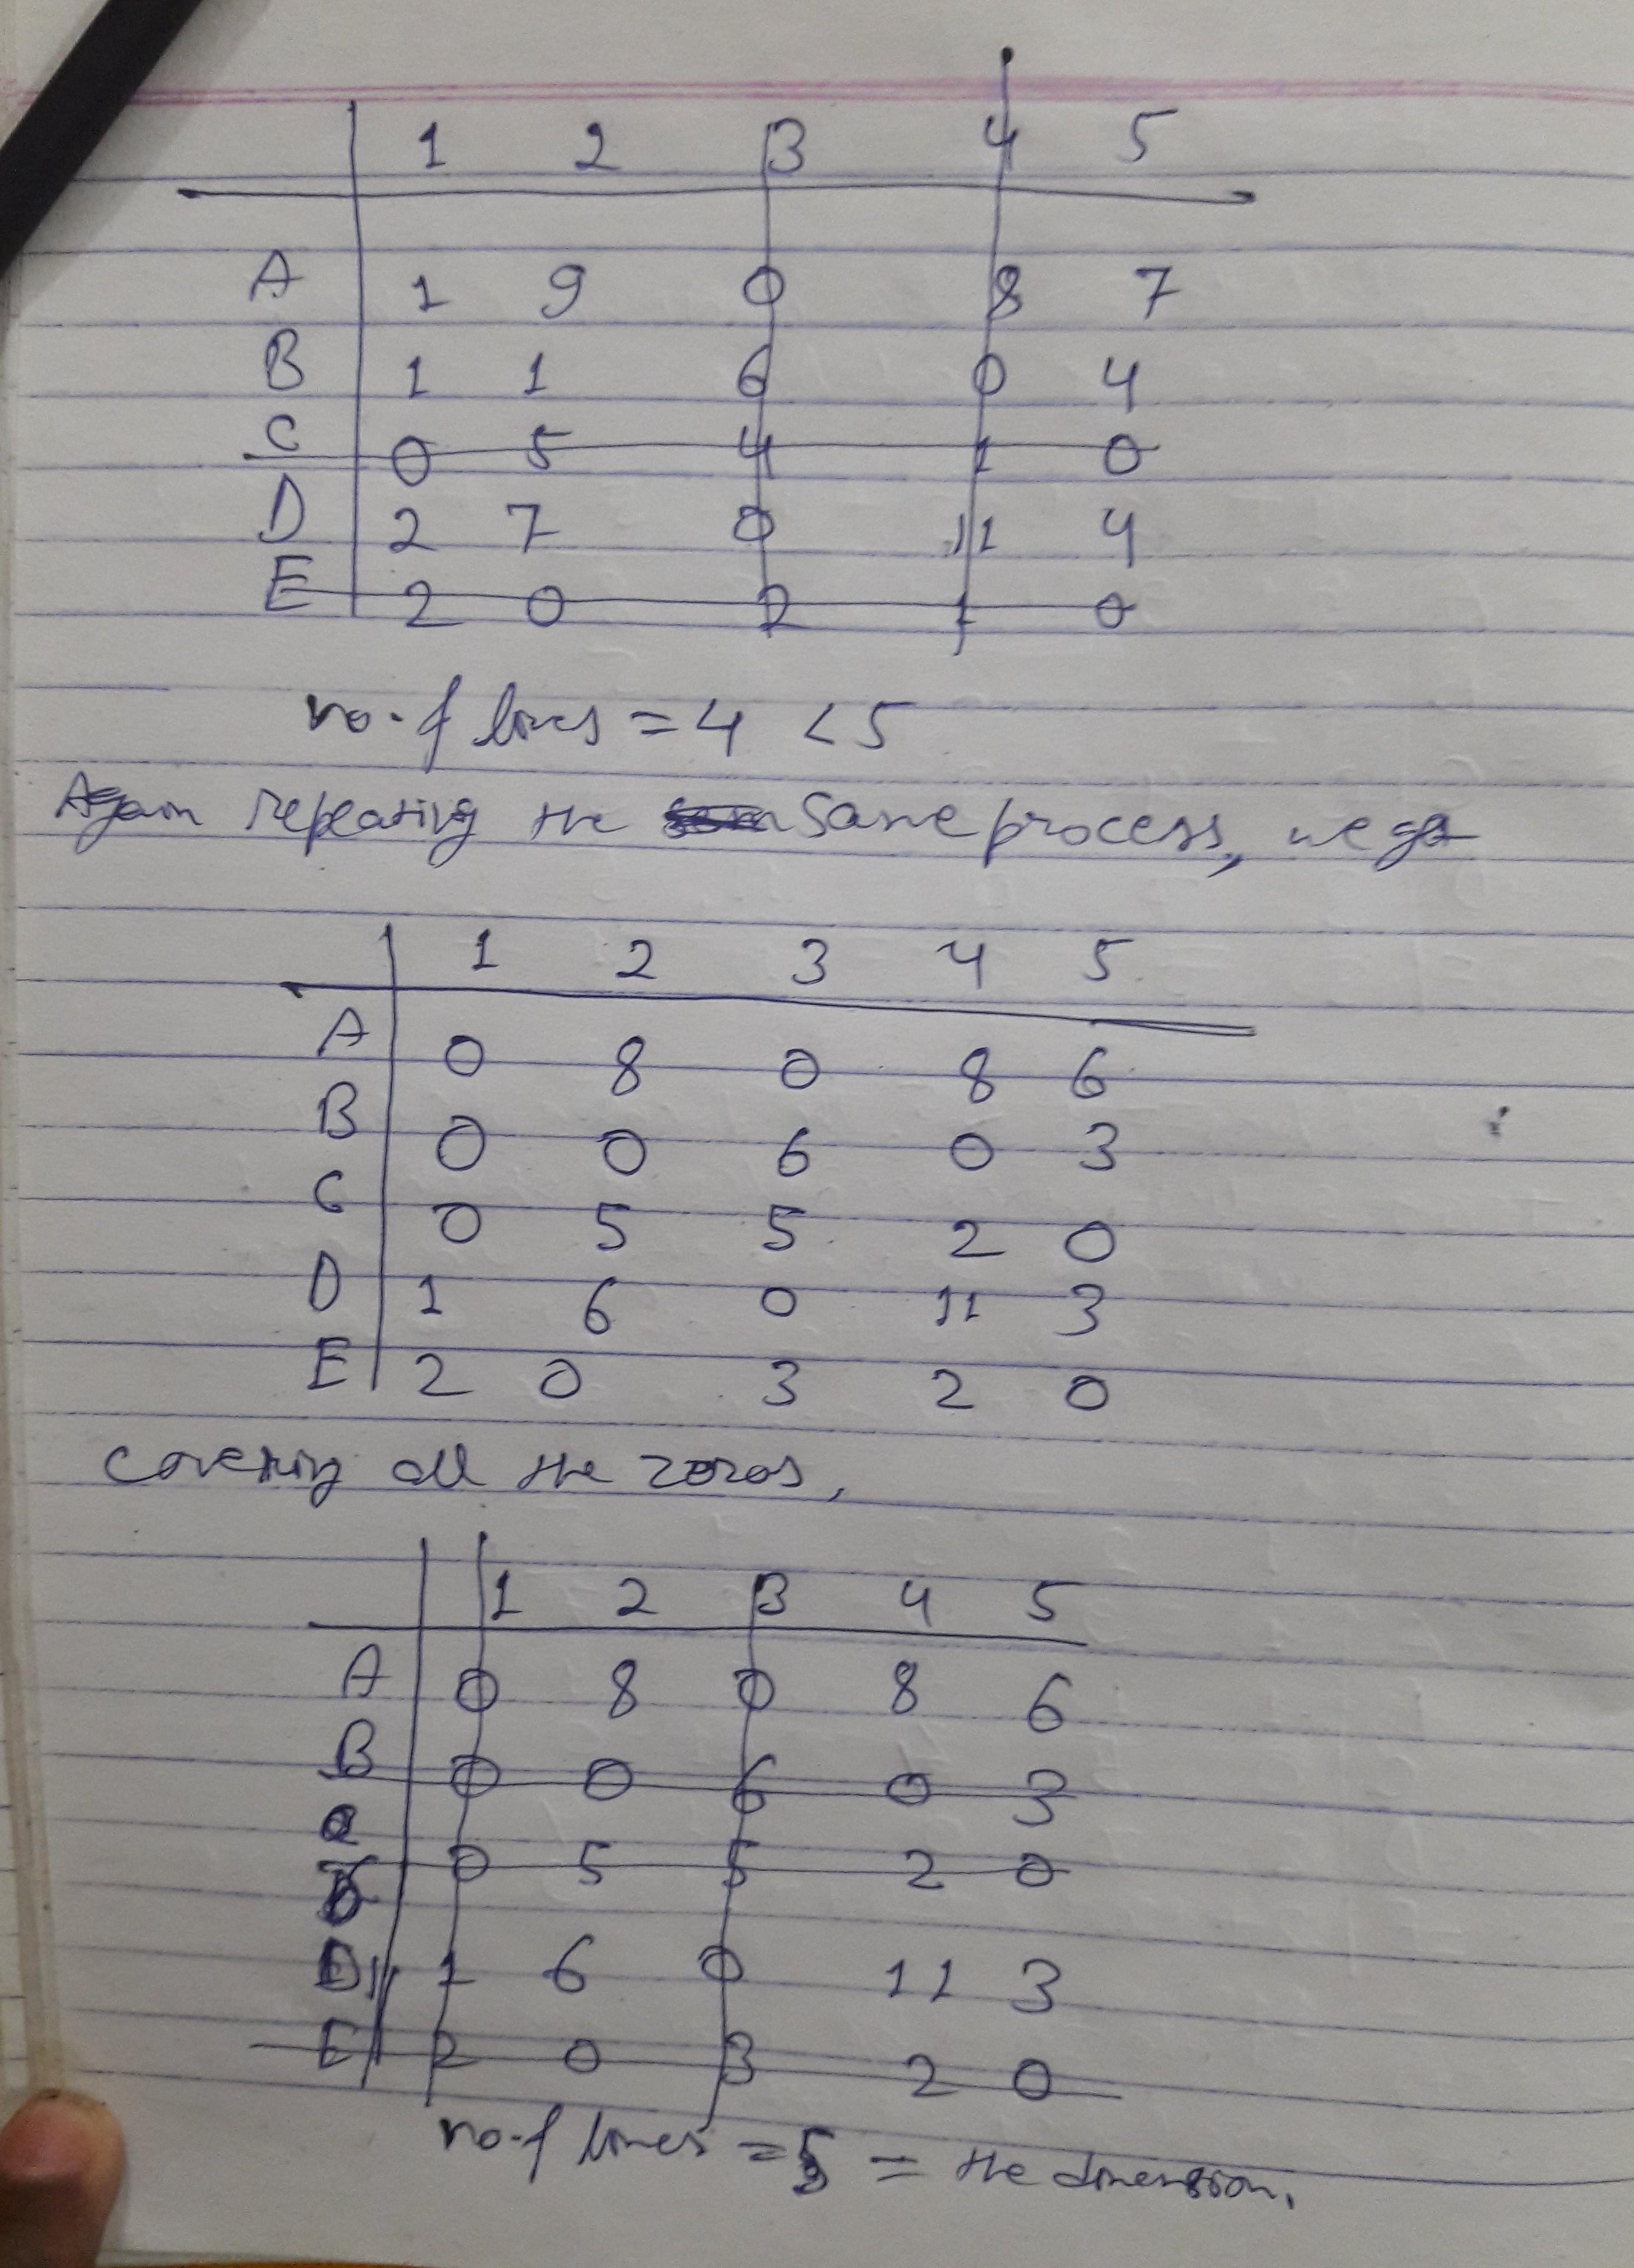 1 2 3 4 5
A 1 9 0 8 7
B 1 1 6 0 4
C 0 5 4 1 0
D 2 7 0 11 4
E 2 0 2 1 0
no. of lines = 4 < 5
Again repeating the same process, we get
1 2 3 4 5
A 0 8 0 8 6
B 0 0 6 0 3
C 0 5 5 2 0
D 1 6 0 11 3
E 2 0 3 2 0
Covering all the zeros,
1 2 3 4 5
A 0 8 0 8 6
B 0 0 6 0 3
C 0 5 5 2 0
D 1 6 0 11 3
E 2 0 3 2 0
no. of lines = 5 = the dimension.